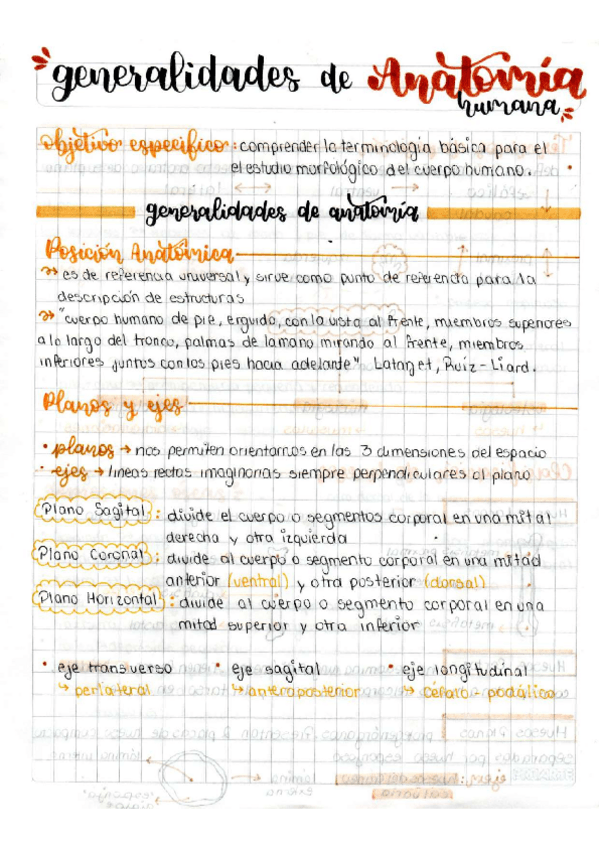 generalidades de Anatomía
humana
objetivo específico: comprender la terminología básica para el
el estudio morfológico del cuerpo humano.
generalidades de anatomía
Posición Anatómica
es de referencia universal y sirve como punto de referencia para la
descripción de estructuras
"cuerpo humano de pie, erguido, con la vista al frente, miembros superiores
a lo largo del tronco, palmas de la mano mirando al frente, miembros
inferiores juntos con los pies hacia adelante" Latarjet, Ruiz-Liard.
Planos y ejes
• planos → nos permiten orientarnos en las 3 dimensiones del espacio
• ejes → líneas rectas imaginarias siempre perpendiculares al plano
Plano Sagital: divide el cuerpo o segmentos corporal en una mital
derecha y otra izquierda
Plano Coronal: divide al cuerpo o segmento corporal en una mitad
anterior (ventral) y otra posterior (dorsal)
Plano Horizontal: divide al cuerpo o segmento corporal en una
mitad superior y otra inferior
• eje transverso • eje sagital • eje longitudinal
↳ perlateral ↳ anteroposterior ↳ céfalo-podálico